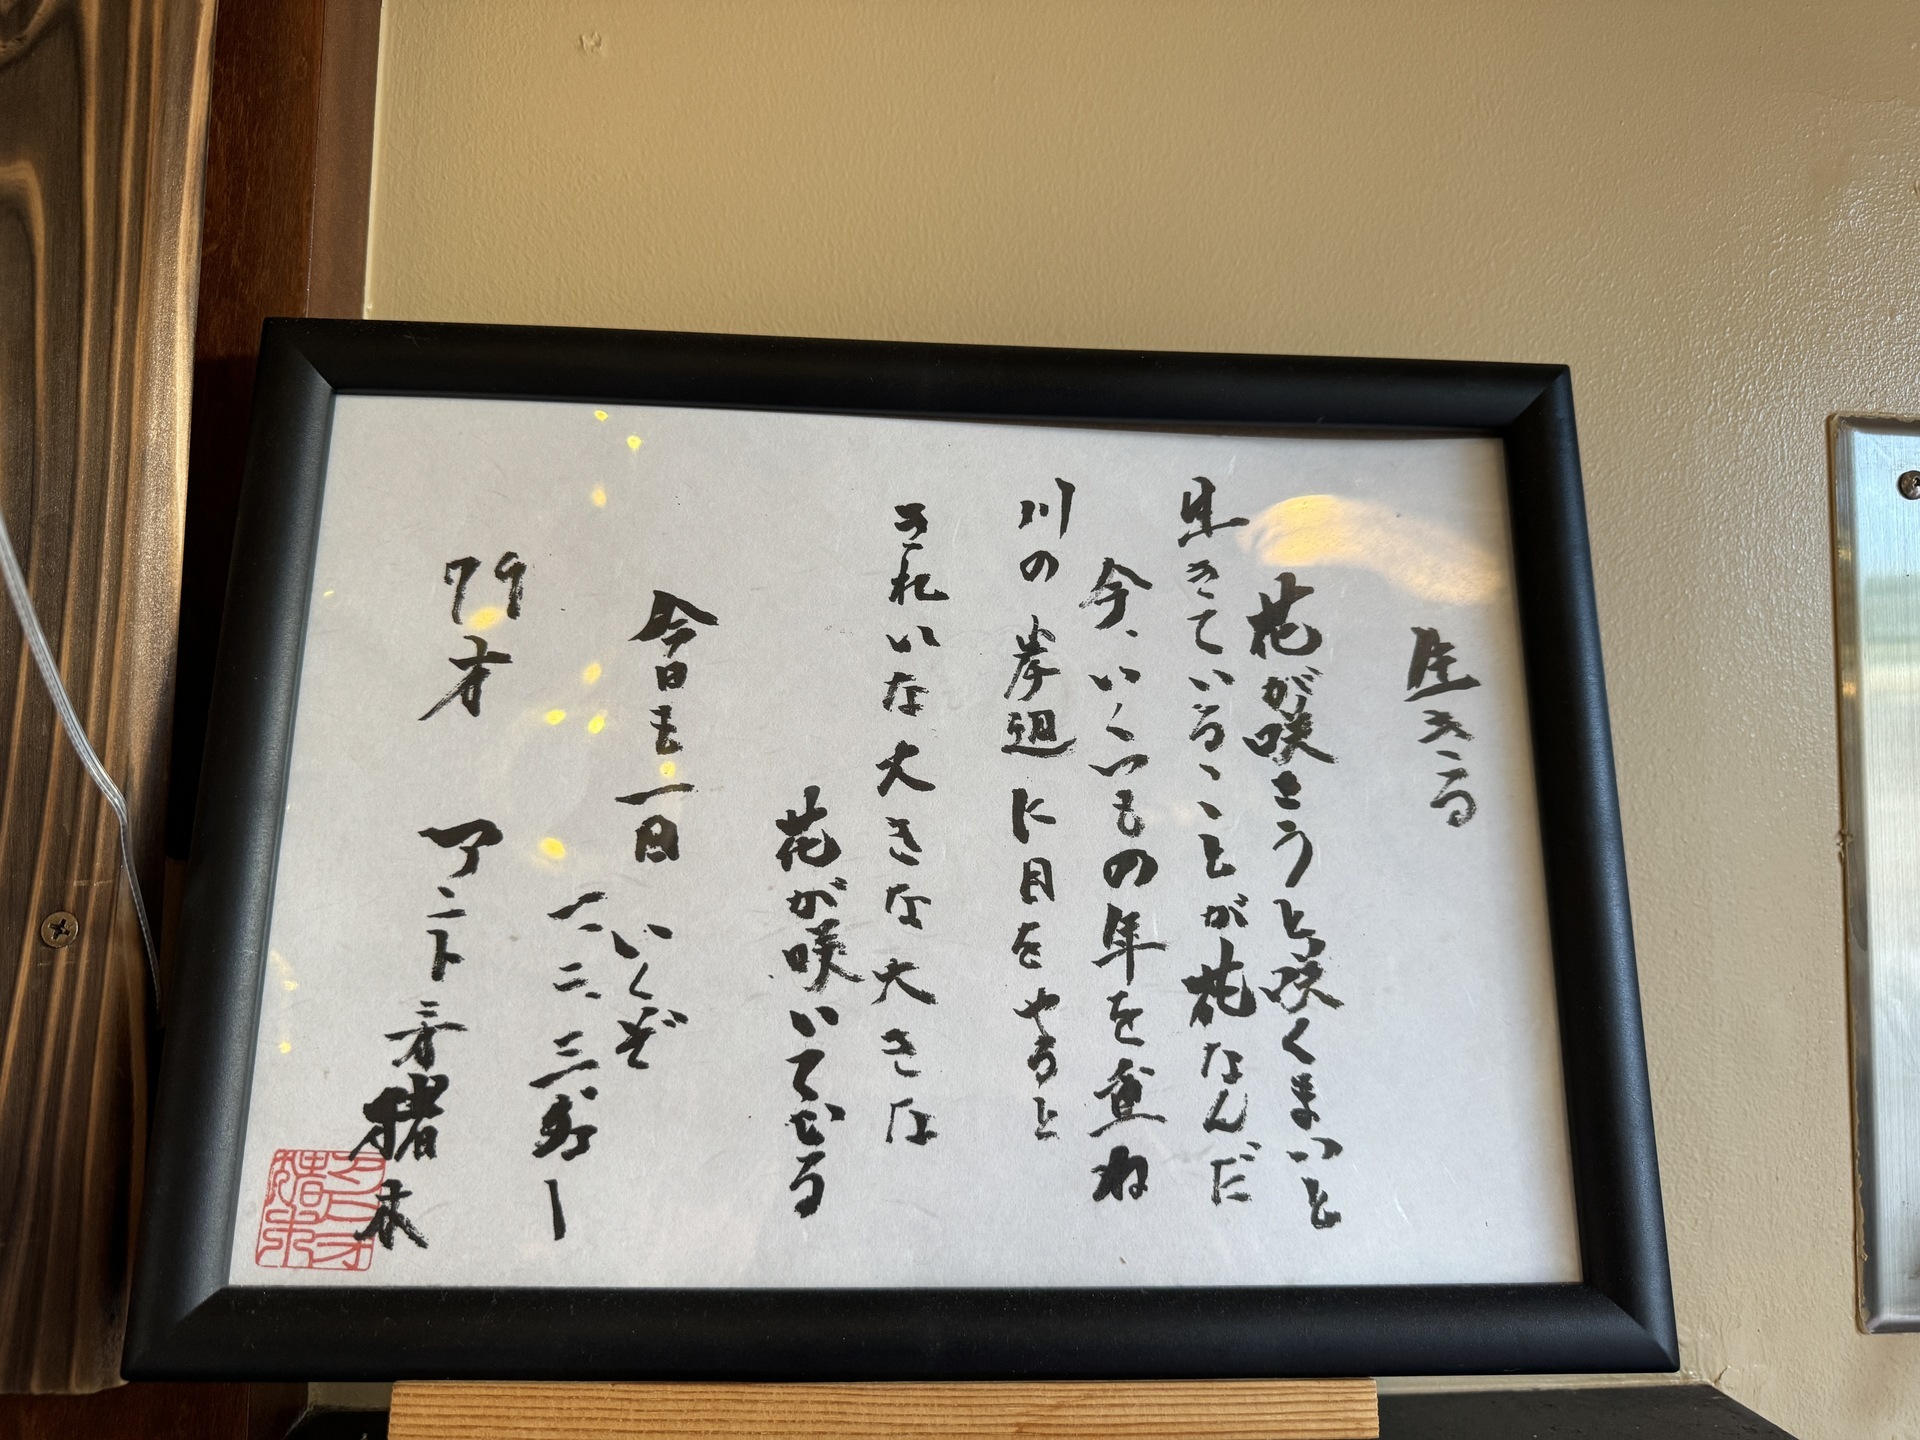 生きる
花が咲こうと咲くまいと
生きていることが花なんだ
今、いくつもの年を重ね
川の岸辺に目をやると
きれいな大きな大きな
花が咲いてる
今日も一日 いくぞ
一、二、三ダー
79才 アントニオ猪木